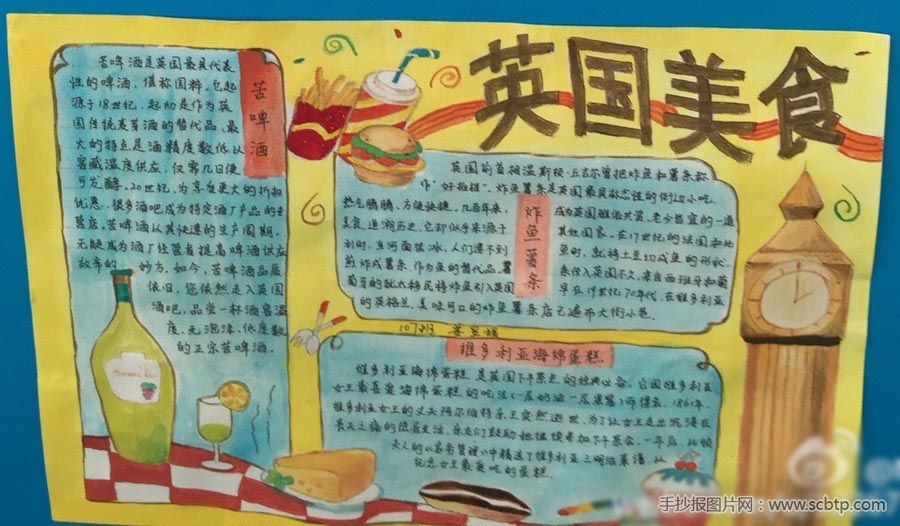 英国美食
苦啤酒
苦啤酒是英国最具代表
性的啤酒,堪称国粹。它起
源于18世纪,起初是作为英
国传统麦芽酒的替代品。最
大的特点是酒精度数低,从
窖藏温度供应,仅需几日便
可发酵。20世纪,为享受更大的折扣
优惠,很多酒吧成为特定酒厂产品的专
营店。苦啤酒以其快速的生产周期,
无疑成为酒厂经营者提高啤酒供应
效率的一妙方。如今,苦啤酒品质
依旧,您依然走入英国
酒吧,品尝一杯酒窖温
度、无泡沫、低度数
的正宗苦啤酒。
炸鱼薯条
英国前首相温斯顿·丘吉尔曾把炸鱼和薯条称
作“好拍档”。炸鱼薯条是英国最具标志性的街边小吃,
热气腾腾,方便快捷。几百年来,成为英国雅俗共赏、老少皆宜的一道
美食。追溯历史,它却似乎来源于其他国家。在17世纪的法国和比
利时,当河面结冰,人们逮不到鱼时,就将土豆切成鱼的形状,
煎炸成薯条,作为鱼的替代品。薯条传入英国不久,来自西班牙和葡
萄牙的犹太移民将炸鱼引入英国。早在19世纪70年代,在维多利亚
的英格兰,美味可口的炸鱼薯条店已遍布大街小巷。
107班
维多利亚海绵蛋糕
维多利亚海绵蛋糕是英国下午茶史的经典必备。它因维多利亚
女王最喜爱海绵蛋糕的吃法(一层奶油一层果酱)而得名。1861年,
维多利亚女王的丈夫阿尔伯特亲王突然逝世,为了让女王走出沉浸在
丧夫之痛的隐居生活,亲友们鼓励她继续参加下午茶会。一年后,比顿
夫人的《家务管理》中精选了维多利亚三明治菜谱,以
纪念女王最爱吃的蛋糕。
手抄报图片网:www.scbtp.com